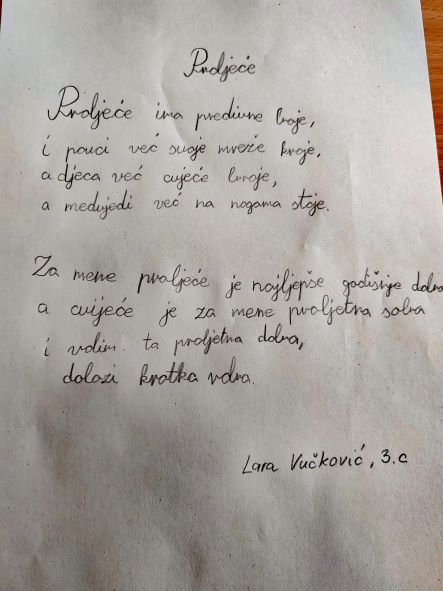 Proljeće
Proljeće ima predivne boje,
i pauci već svoje mreže kroje,
a djeca već cvijeće broje,
a medvjedi već na nogama stoje.
Za mene proljeće je najljepše godišnje doba
a cvijeće je za mene proljetna soba
i volim ta proljetna doba,
dolazi kratka roba.
Lara Vučković, 3.c